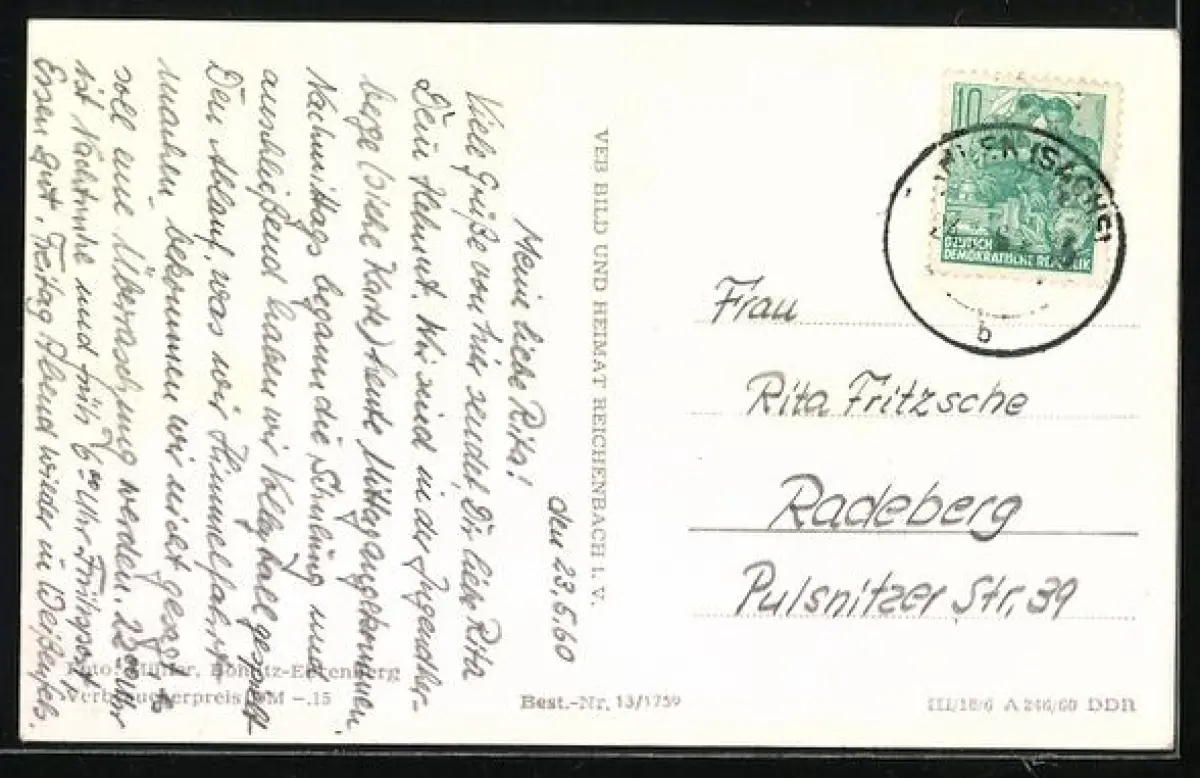 den 23.5.60
Meine liebe Rita!
Viele Grüße von hir sendet Dir liebe Rita
Dein Helmut. Wir sind in der Jugendher-
berge (siehe Karte) heute Mittag angekommen.
Nachmittags begann die Schulung und
anschließend haben wir Volleyball gespielt
Den Ablauf, was wir Himmelfahrt
machen, bekommen wir nicht gesagt
soll eine Überraschung werden. 22⁰⁰ Uhr
ist Nachtruhe und früh 6⁰⁰ Uhr Frühsport,
Essen gut. Freitag Abend wieder in Weißenfels.
VEB BILD UND HEIMAT REICHENBACH I. V.
10
DEUTSCHE
DEMOKRATISCHE REPUBLIK
(SACHS)
b
Frau
Rita Fritzsche
Radeberg
Pulsnitzer Str. 39
Foto:
Verbraucherpreis DM -.15
Best.-Nr. 13/1759
III/18/6 A 246/60 DDR